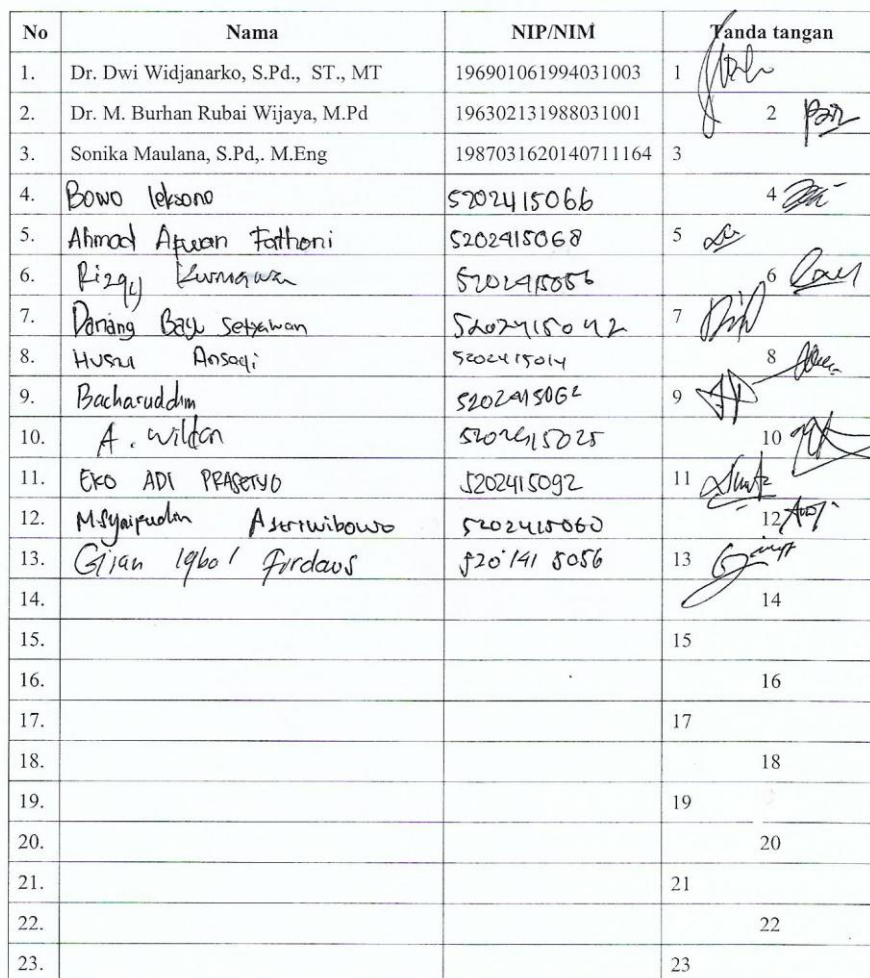 No Nama NIP/NIM Tanda tangan
1. Dr. Dwi Widjanarko, S.Pd., ST., MT 196901061994031003 1
2. Dr. M. Burhan Rubai Wijaya, M.Pd 196302131988031001 2
3. Sonika Maulana, S.Pd,. M.Eng 1987031620140711164 3
4. Bowo leksono 5202415066 4
5. Ahmad Afwan Fathoni 5202415068 5
6. Rizqy Kurniawan 6
7. Danang Bayu Setyawan 5202415042 7
8. Ansoqi 5202415014 8
9. Bacharuddim 5202415062 9
10. A. wildan 5202415025 10
11. EKO ADI PRASETYO 5202415092 11
12. M.Syaipudin Astriwibowo 5202415060 12
13. Gian Iqbal Firdaus 13
14. 14
15. 15
16. 16
17. 17
18. 18
19. 19
20. 20
21. 21
22. 22
23. 23